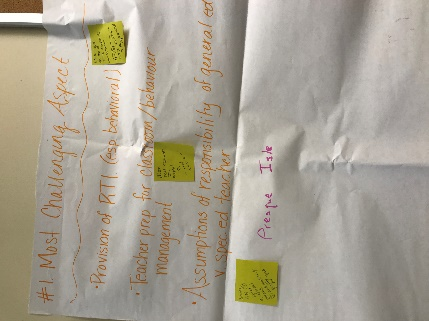 #1. Most Challenging Aspect
• Provision of RTI (esp behavioral)
• Teacher prep for classroom/behaviour
management
• Assumptions of responsibility of general ed
v spec ed teacher
Presque Isle